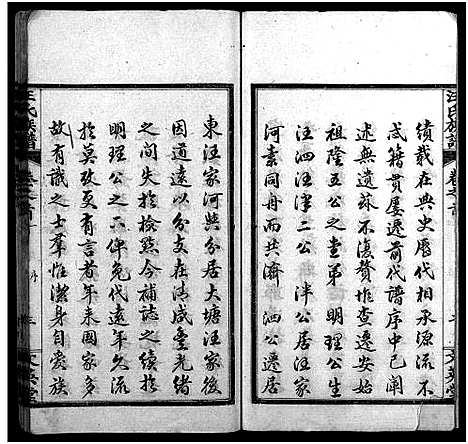 汪氏族譜
卷之首
績載在典史歷代相承源流不
忒籍貫屢遷前代譜序中已闡
述無遺茲不復贅惟查遷安始
祖隆五公之堂弟 明理公生
汪泗汪津二公 津公居汪家
河素同共濟 泗公遷居
東汪家河與分居大塘汪家灣
因道遠以分支在清咸豐光緒
之間失於檢點今補誌之續於
明理公之下俾免代遠年久流
於莫攷更有言者年來國家多
故有識之士羣惟潔身自愛族
汪氏族譜
卷之首
序
三